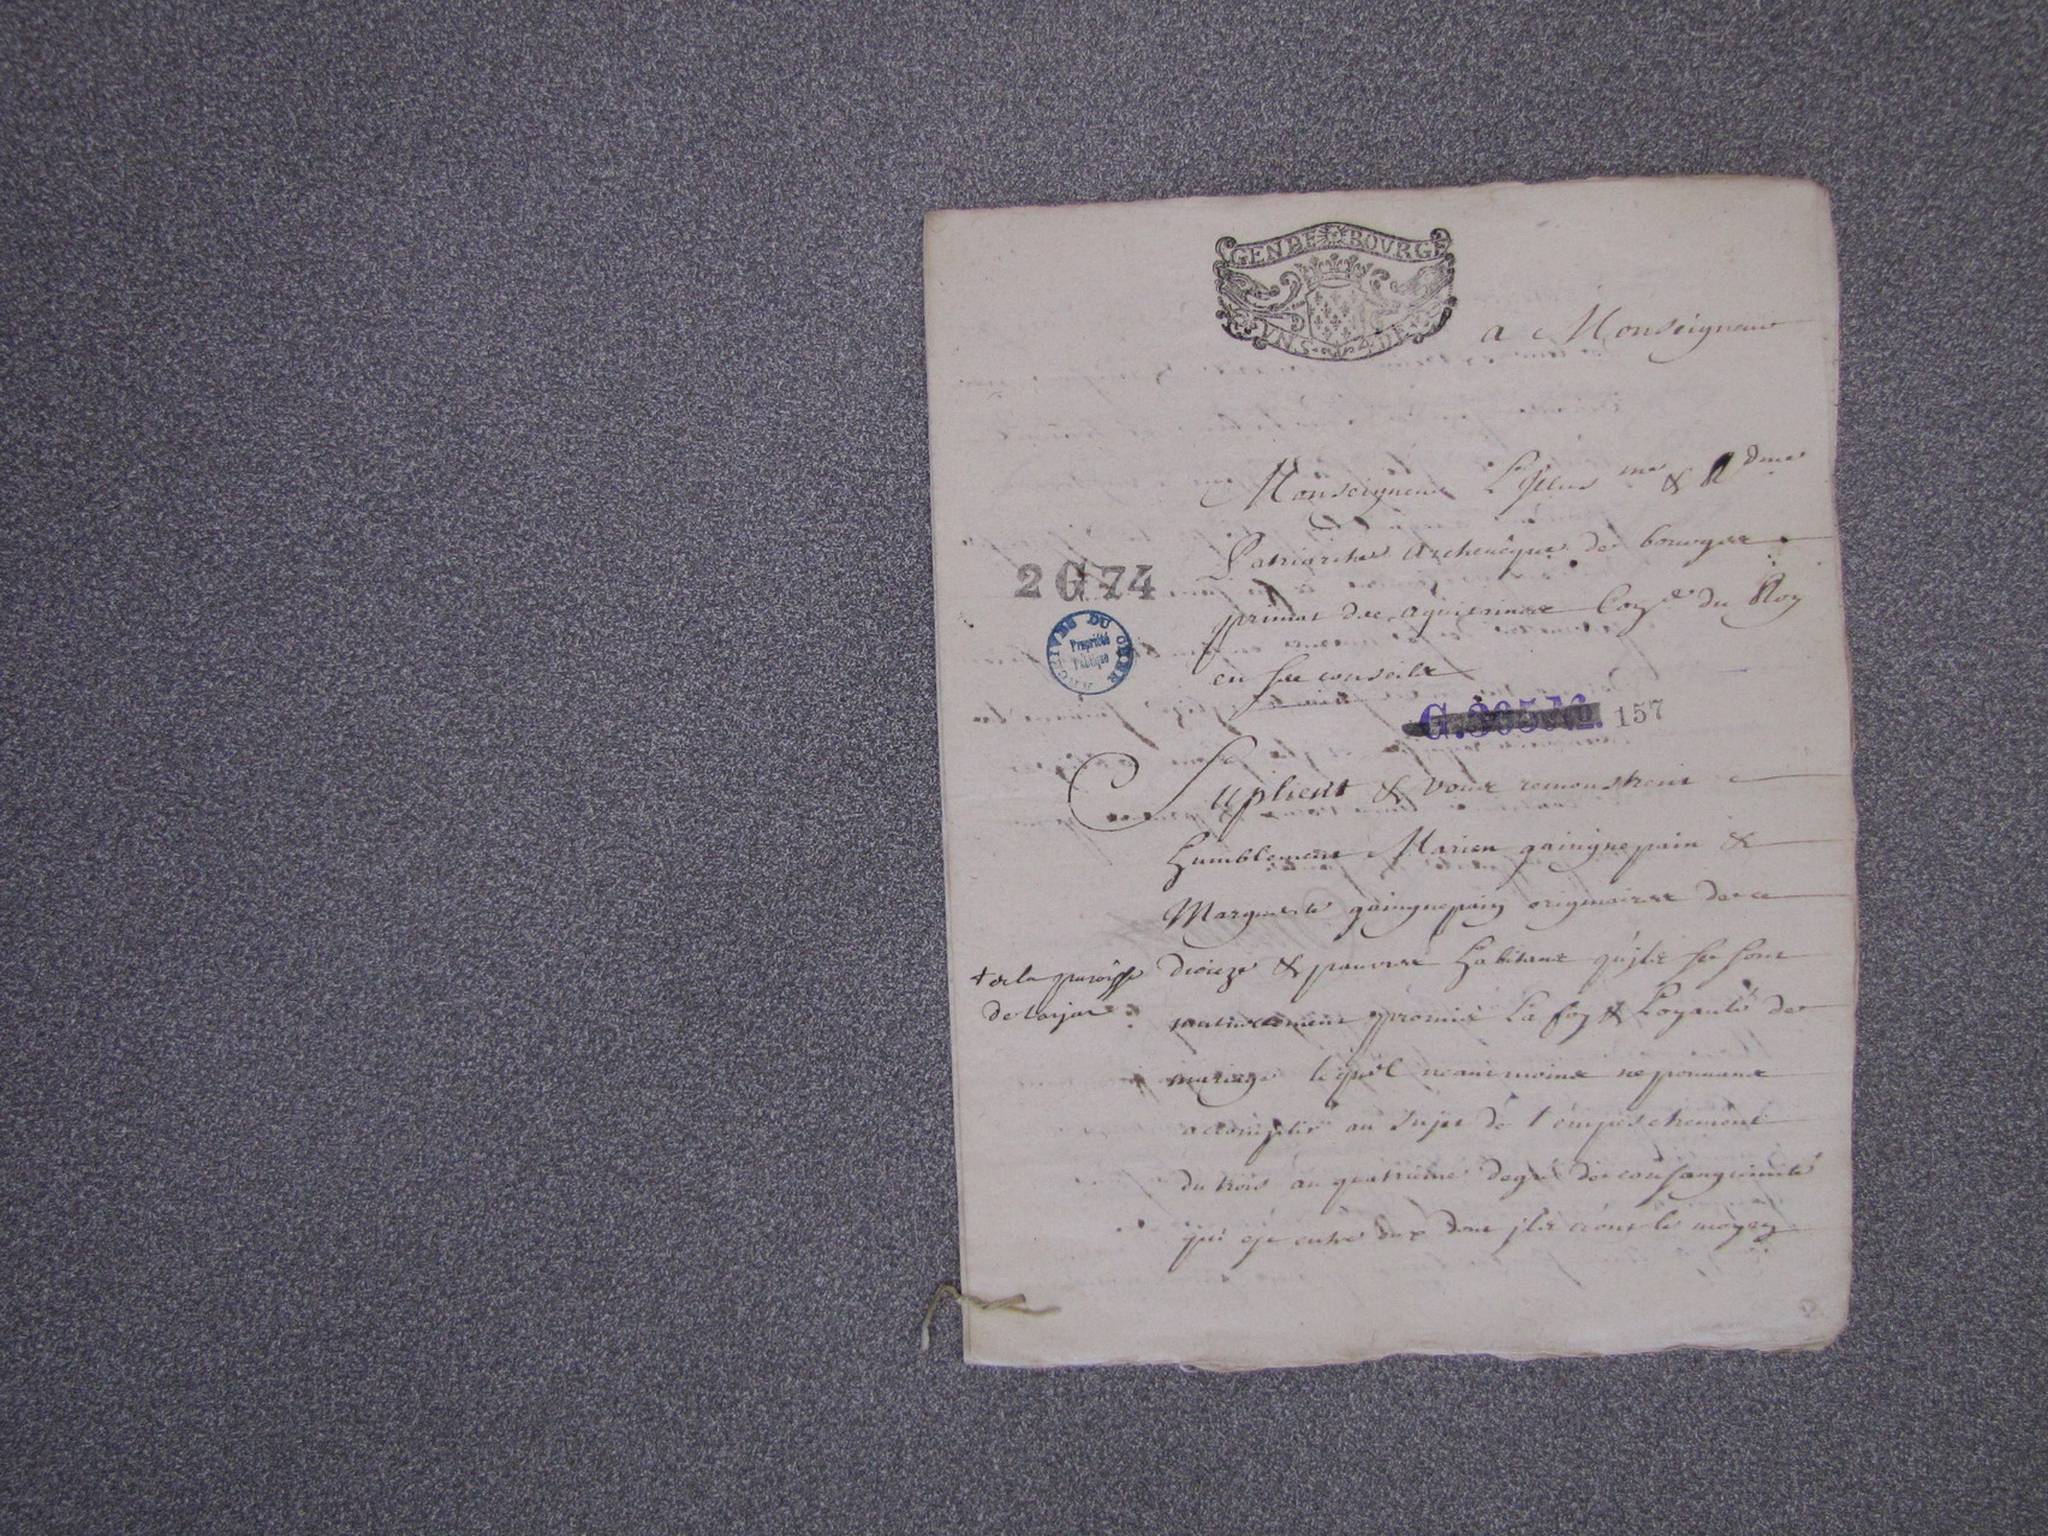 GEN DE BOVRG
VN S 4 DE
a Monseigneur
Monseigneur L'Illus me & R dme
Patriarche archeuêque de bourges
primat des aquitaines Con er du Roy
en ses conseils
2 G 74
ARCHIVES DU CHER
Propriété
Publique
157
Suplient & vous remonstrent
humblement Marien gaingnepain &
Marguerite gaingnepain originaires de ce
dioceze & pauvres habitans qu'ils se sont
+ de la paroisse
de
mutuellement promis la foy & Loyauté de
mariage lequel neantmoins ne pouvant
accomplir au sujet de l'empeschement
du trois au quatrieme degré de consanguinité
qui est entre eux dont ils n'ont le moyen